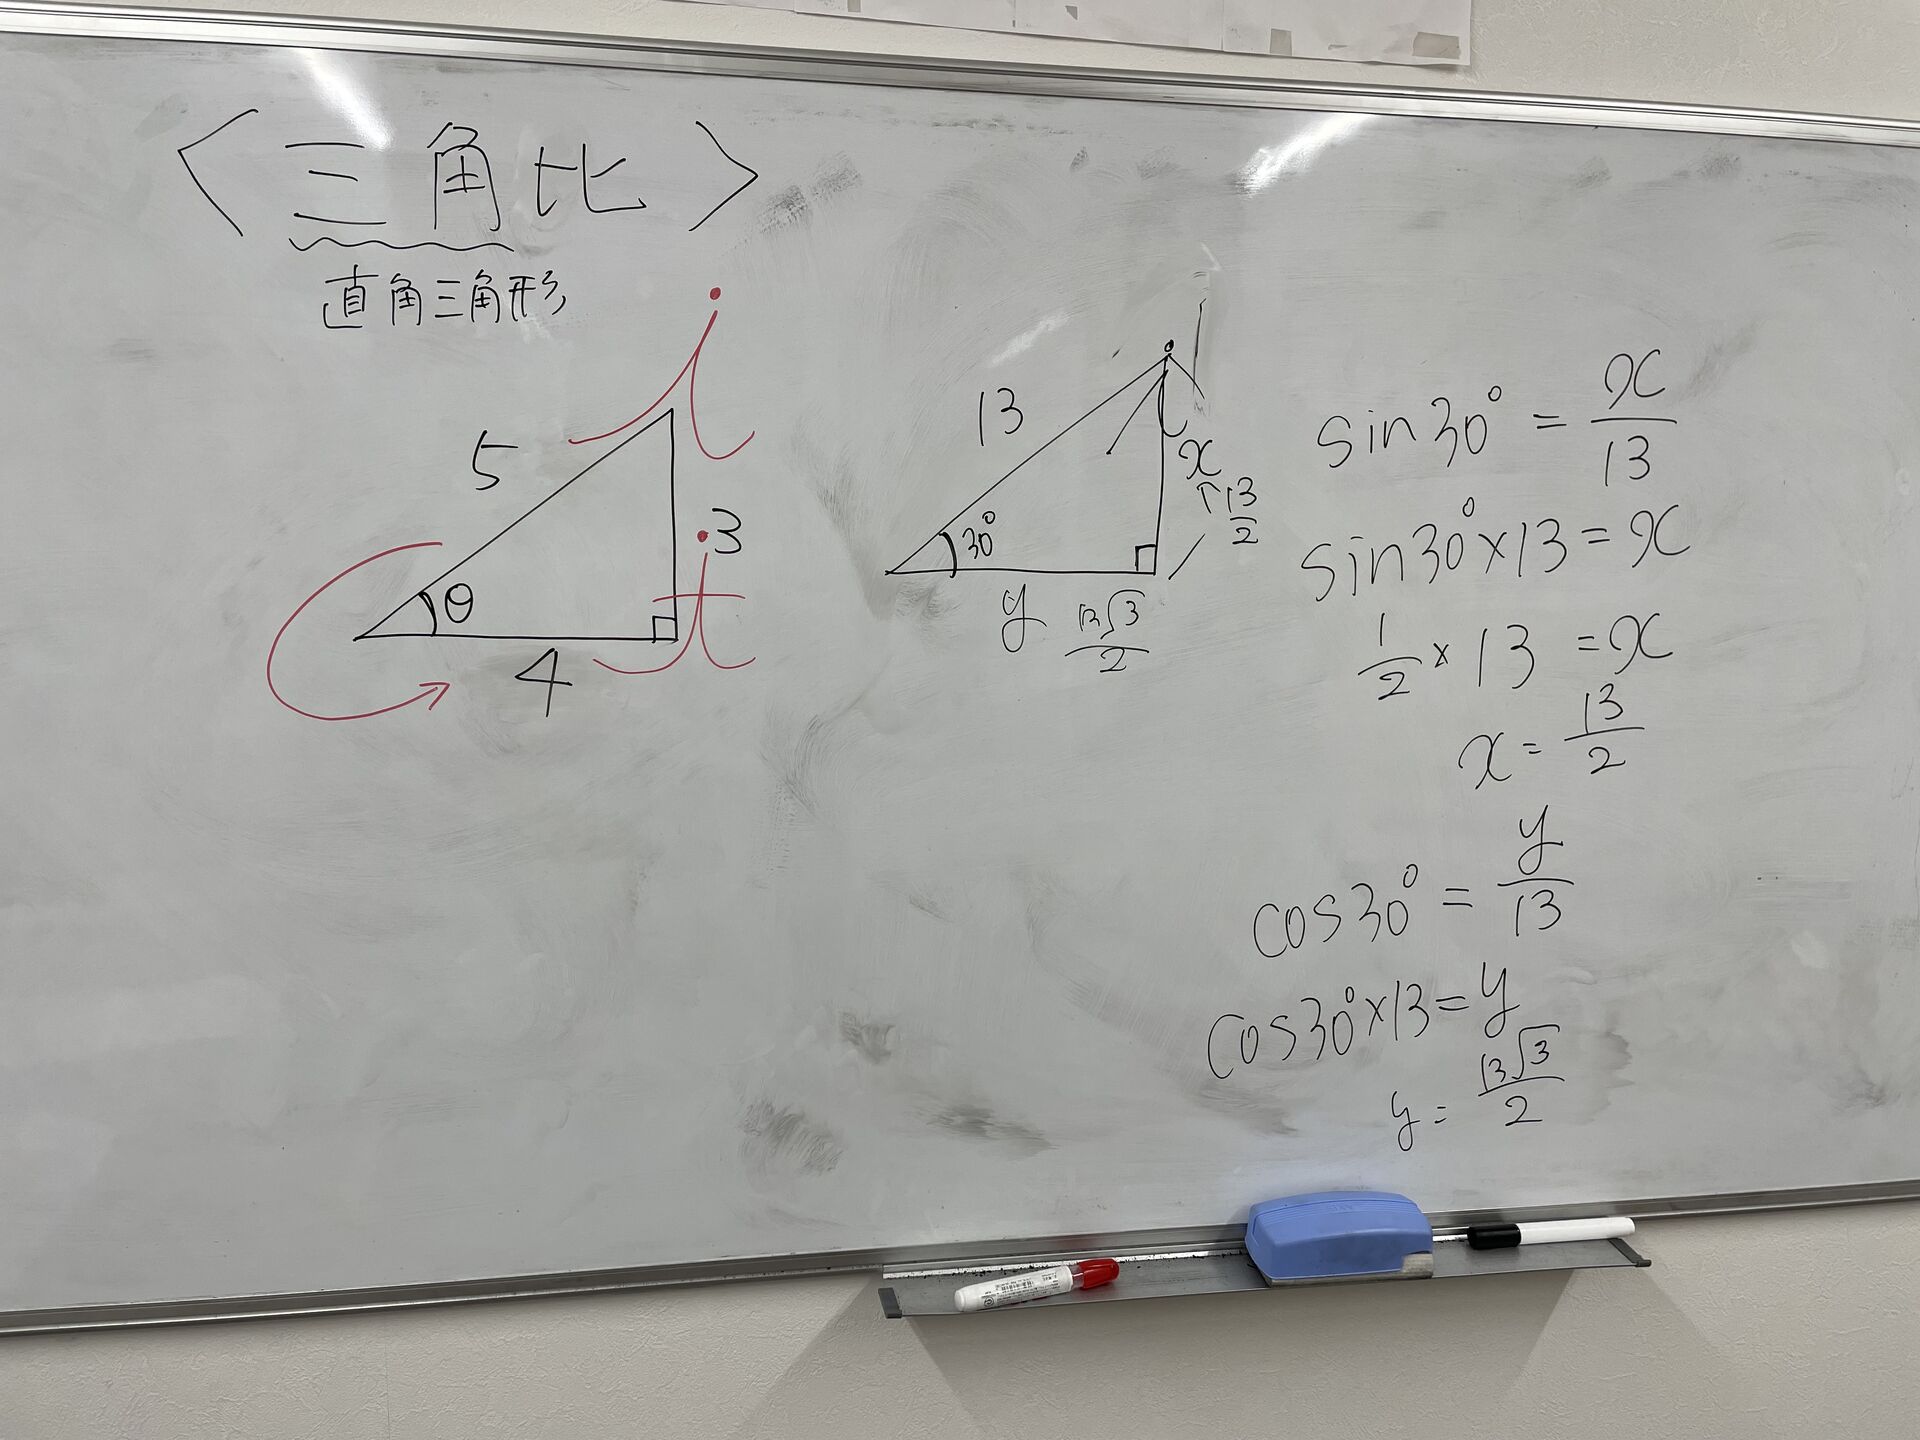 〈三角比〉
直角三角形
5
3
θ
4
13
x
13/2
30°
y
13√3/2
sin30° = x/13
sin30°×13=x
1/2 × 13 = x
x = 13/2
cos30° = y/13
cos30°×13=y
y = 13√3/2